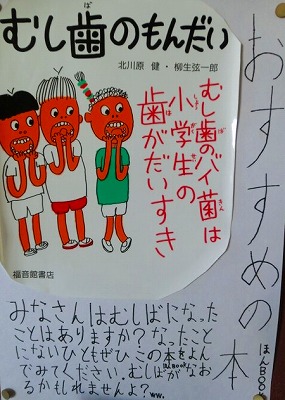 おすすめの本
ほんBOOK
むし歯のもんだい
ば
北川原 健・柳生弦一郎
むし歯のバイ菌は
小学生の
歯がだいすき
福音館書店
みなさんはむしばになった
ことはありますか？なったこと
にないひともぜひこの本をよん
でみてください。むしばがなお
るかもしれませんよ？ww.